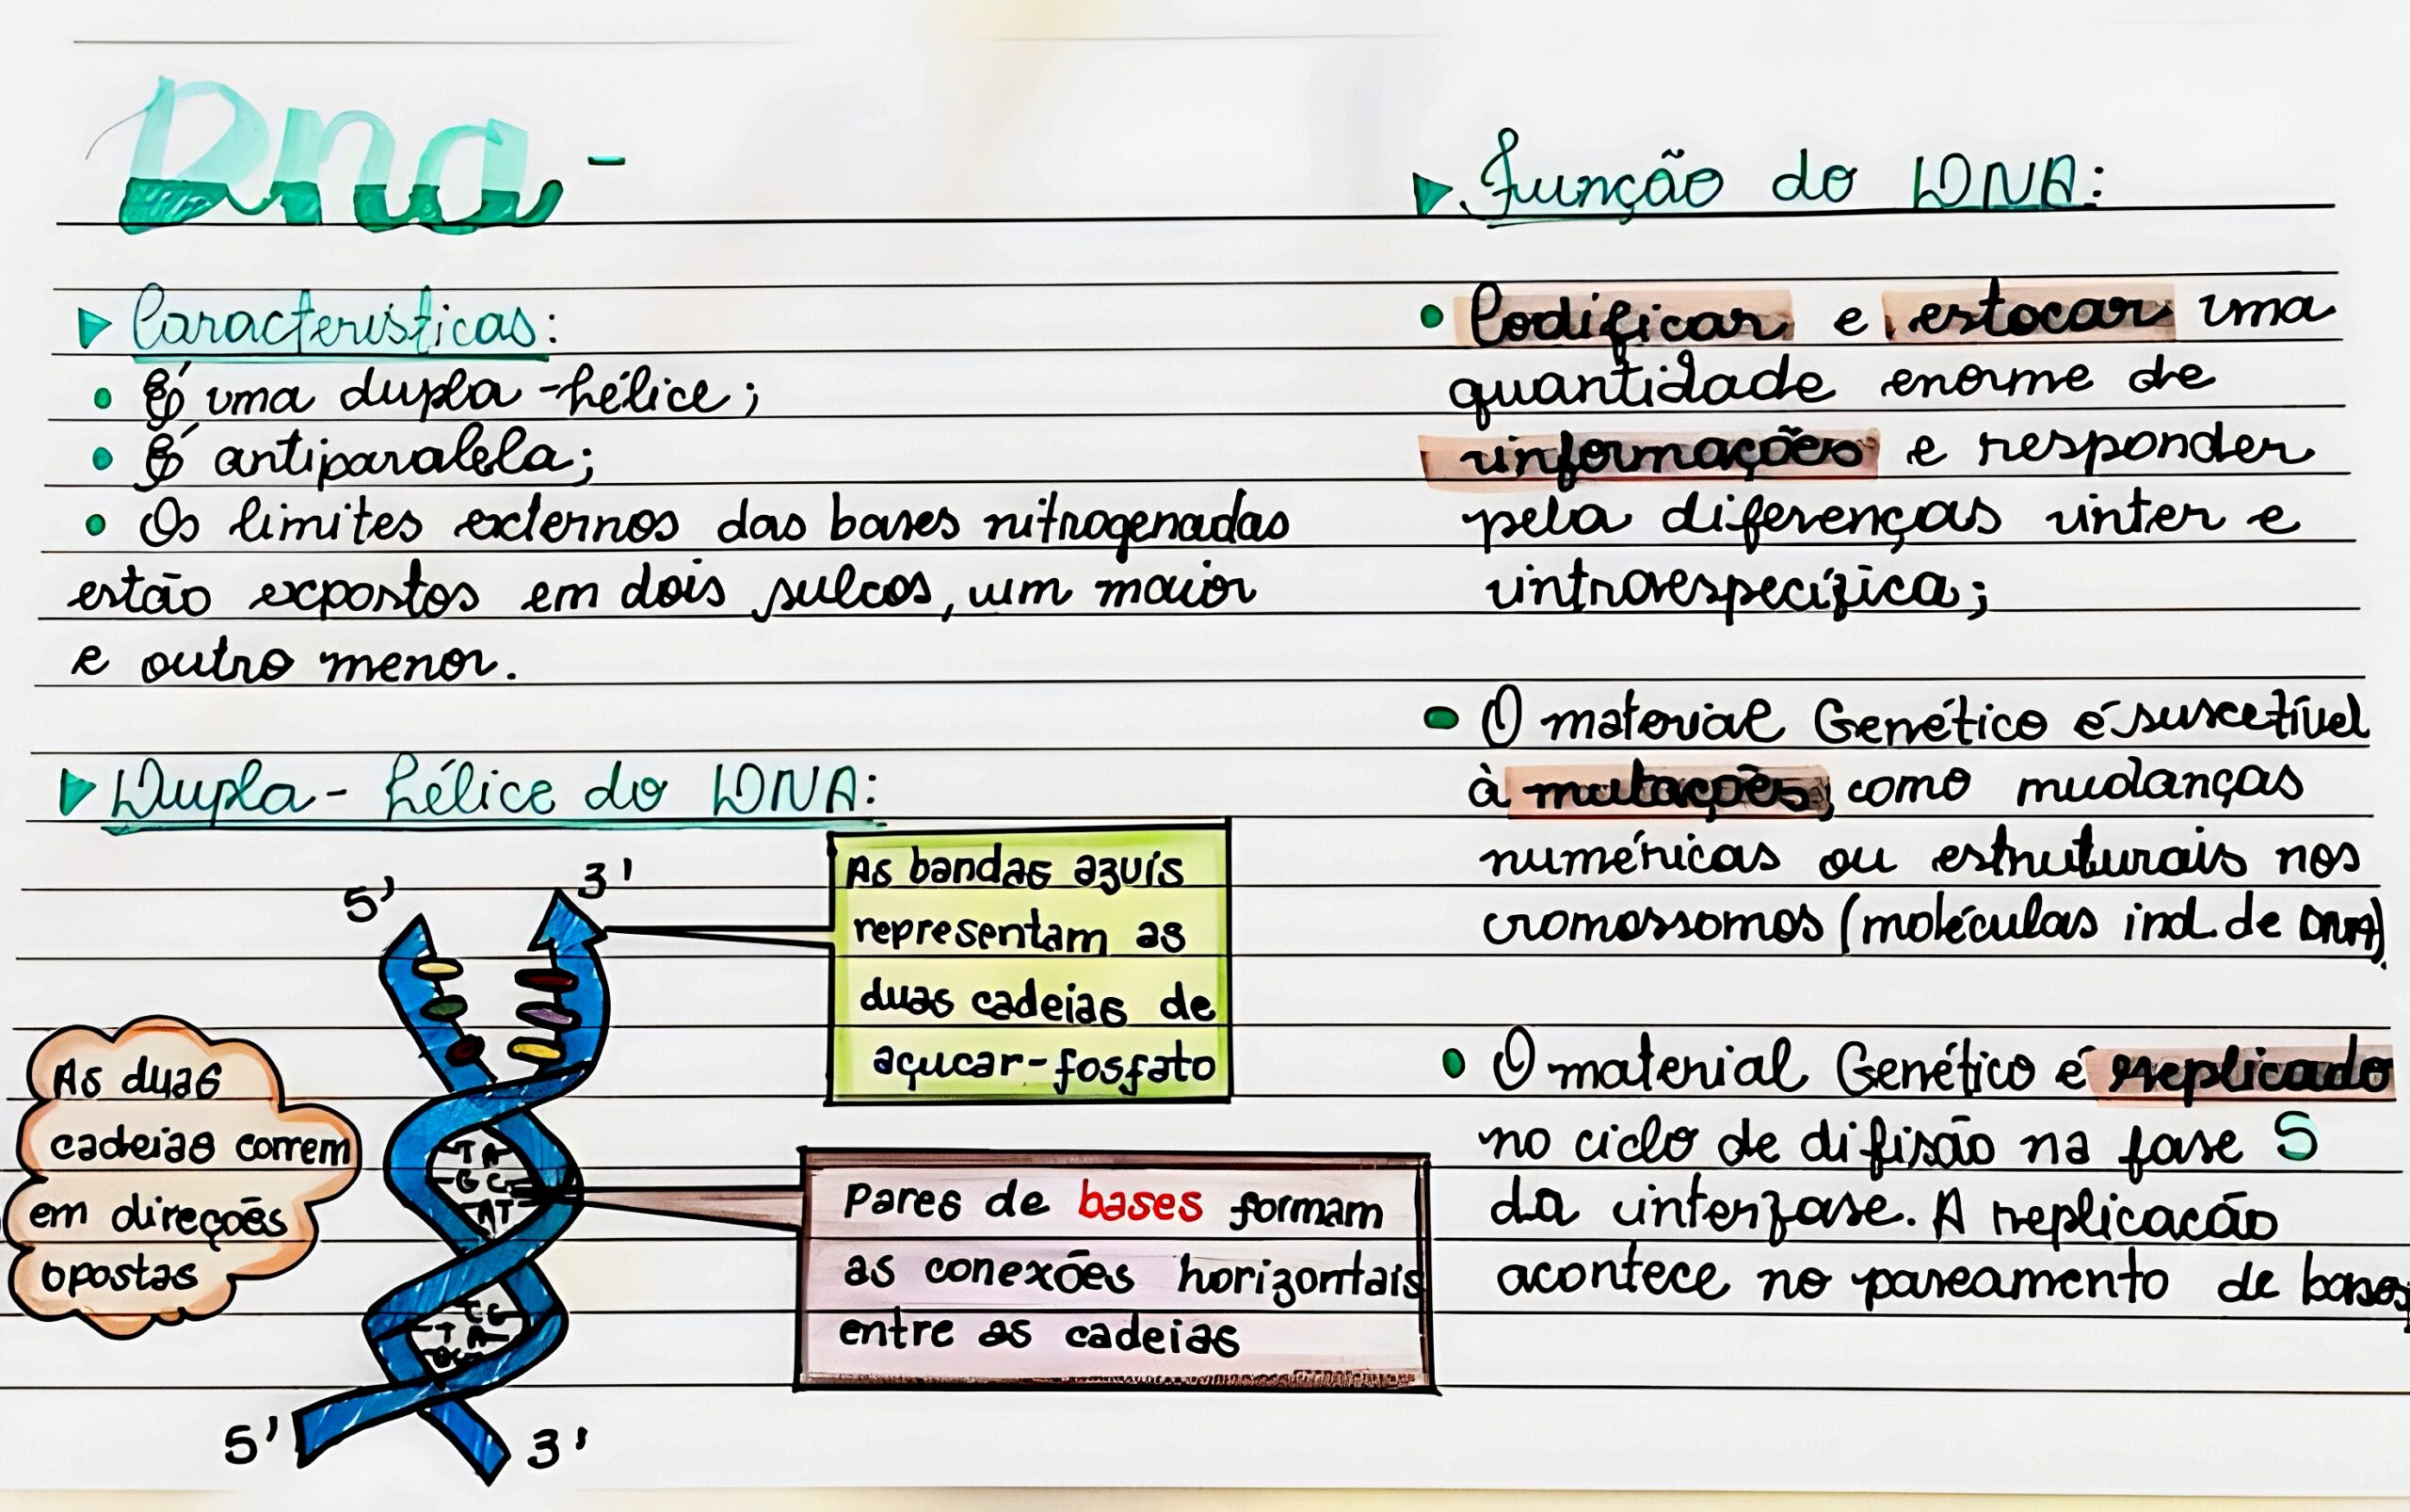 Dna -
▸ Características:
• É uma dupla-hélice;
• É antiparalela;
• Os limites externos das bases nitrogenadas
estão expostos em dois sulcos, um maior
e outro menor.
▸ Dupla-hélice do DNA:
5' 3'
As bandas azuis
representam as
duas cadeias de
açucar-fosfato
As duas
cadeias correm
em direções
opostas
T A
G C
A T
Pares de bases formam
as conexões horizontais
entre as cadeias
C G
T A
5' 3'
▸ Função do DNA:
• Codificar e estocar uma
quantidade enorme de
informações e responder
pela diferenças inter e
intraespecífica;
• O material Genético é suscetível
à mutações, como mudanças
numéricas ou estruturais nos
cromossomos (moléculas ind. de DNA).
• O material Genético é replicado
no ciclo de difisão na fase S
da interfase. A replicacão
acontece no pareamento de bases;